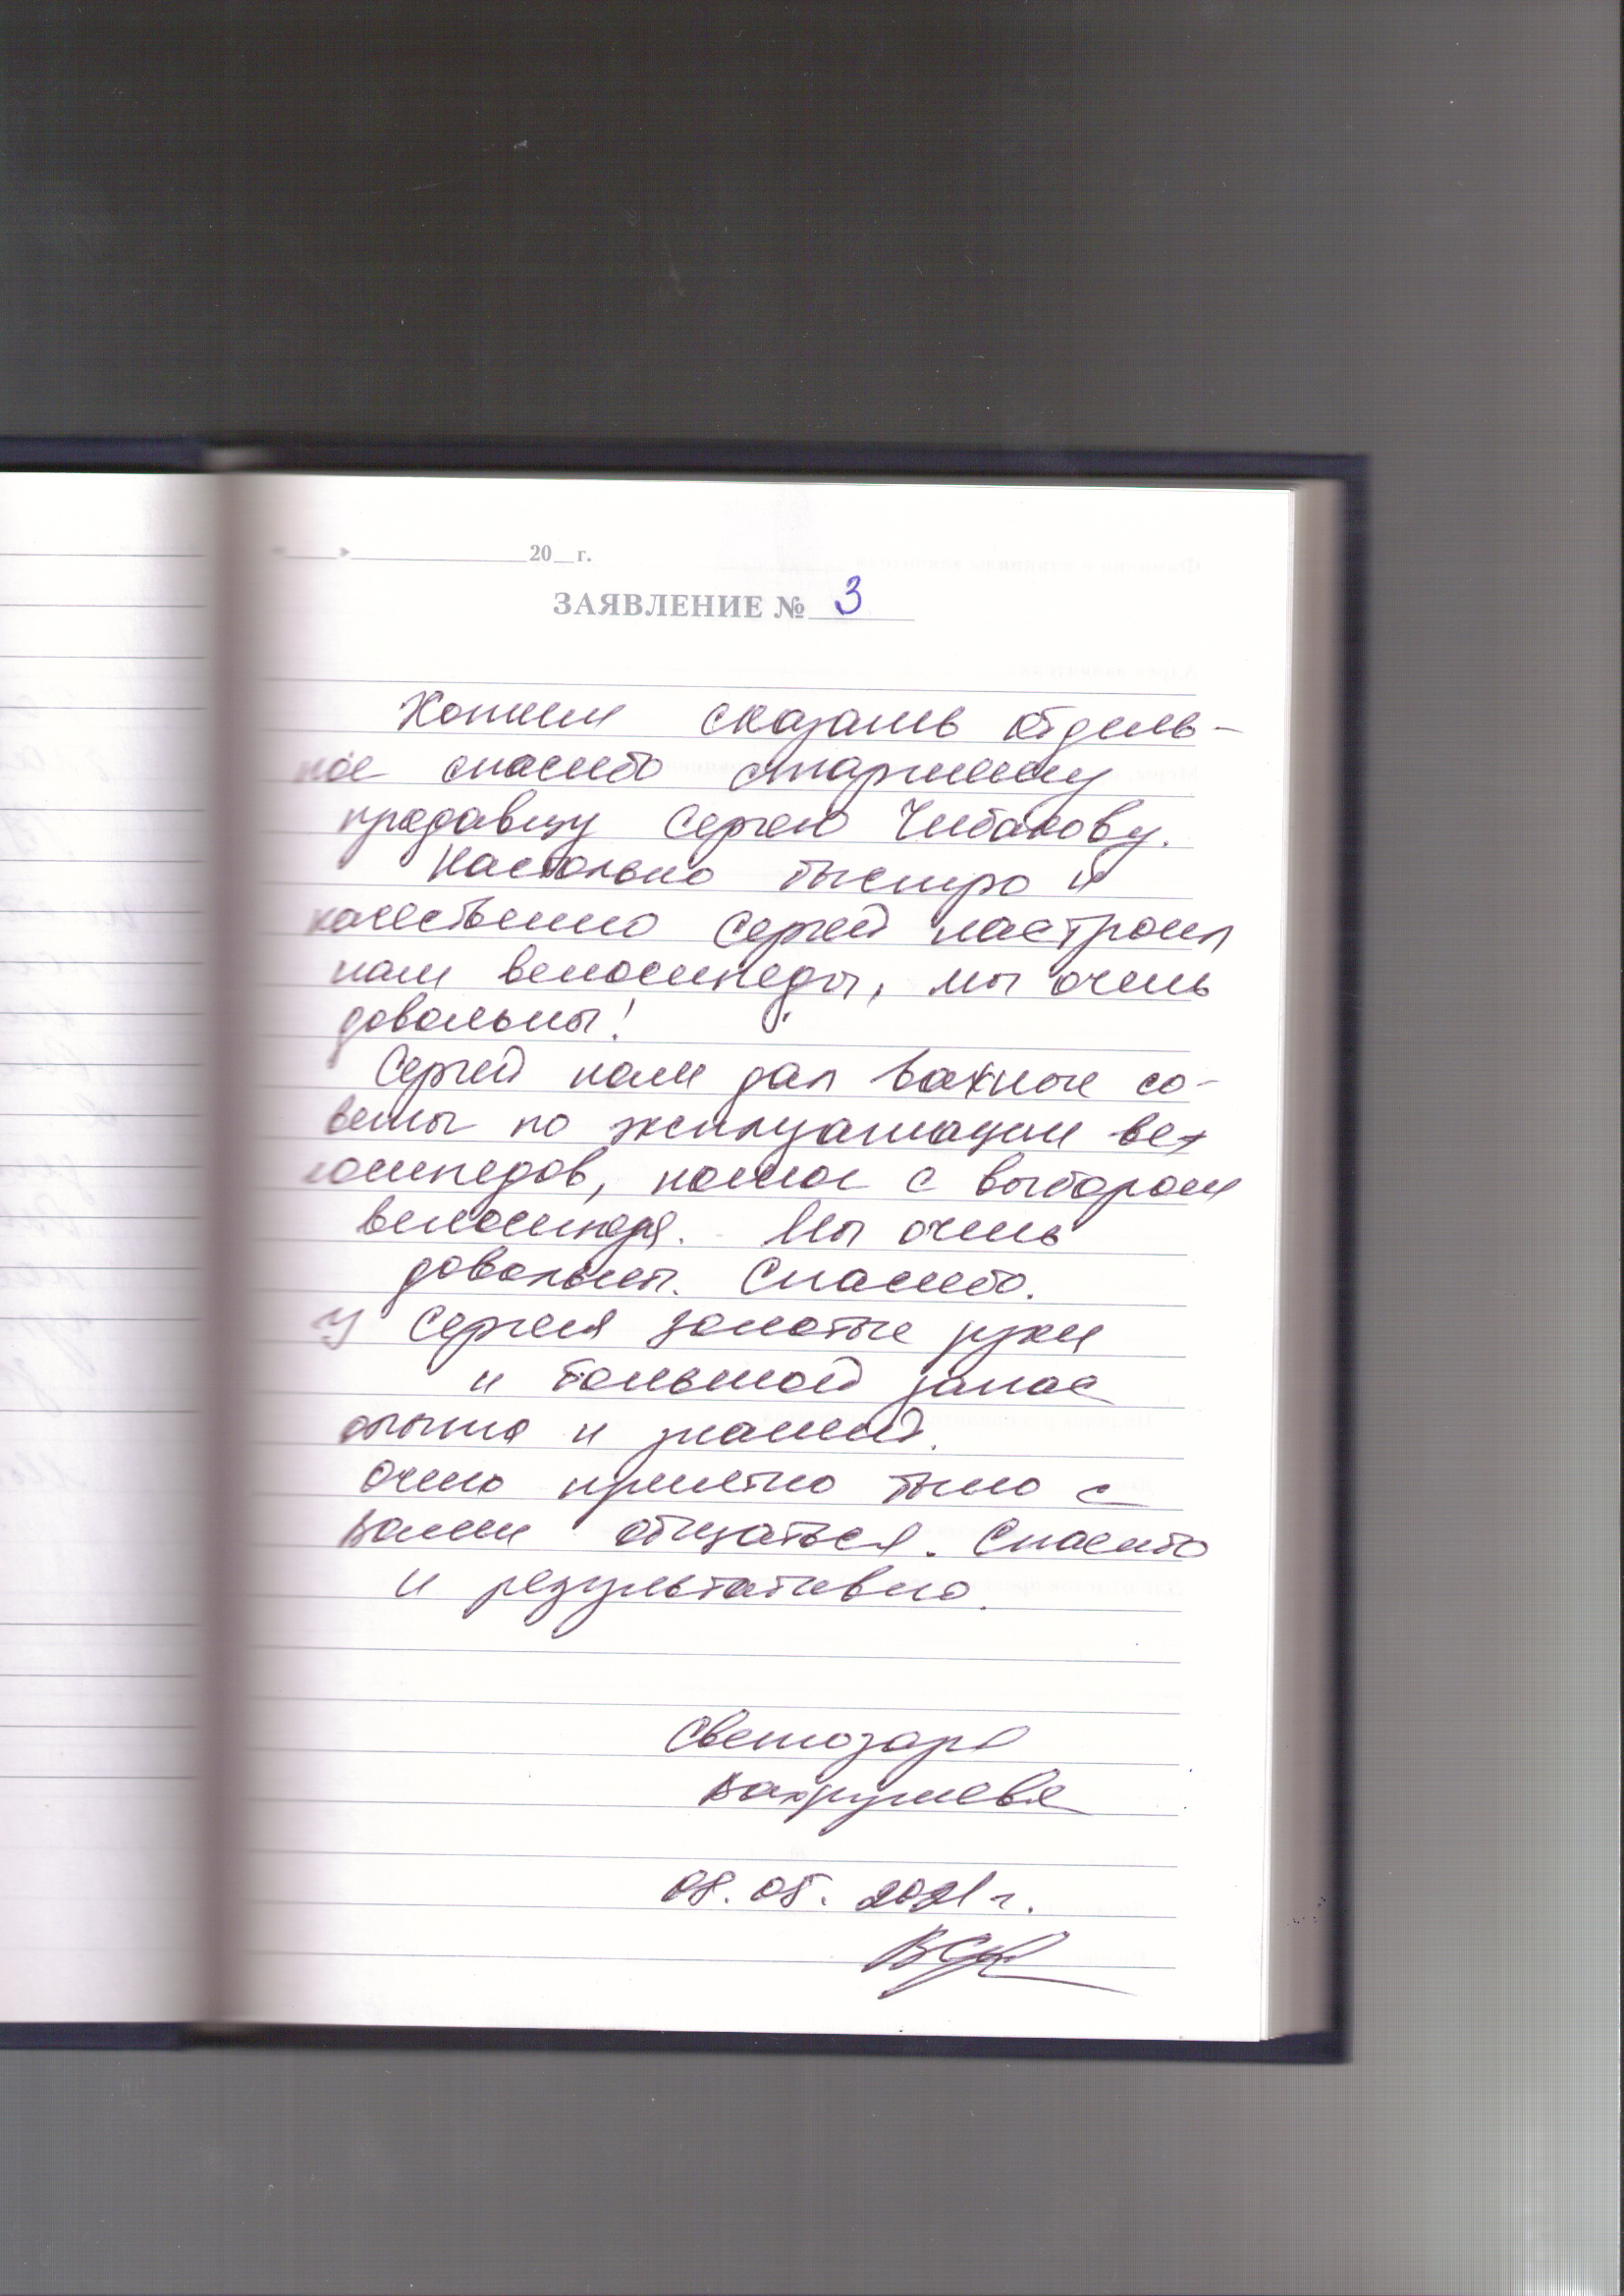 «____»______________20__г.
ЗАЯВЛЕНИЕ № 3
Хотим сказать отдель-
ное спасибо старшему
продавцу Сергею Чибакову.
Настолько быстро и
качественно Сергей настроил
нам велосипеды, мы очень
довольны!
Сергей нам дал важные со-
веты по эксплуатации ве-
лосипедов, помог с выбором
велосипеда. Мы очень
довольны. Спасибо.
У Сергея золотые руки
и большой запас
опыта и знаний.
Очень приятно было с
Вами общаться. Спасибо
и результативно.
Светозара
Вахрушева
08.05.2021 г.